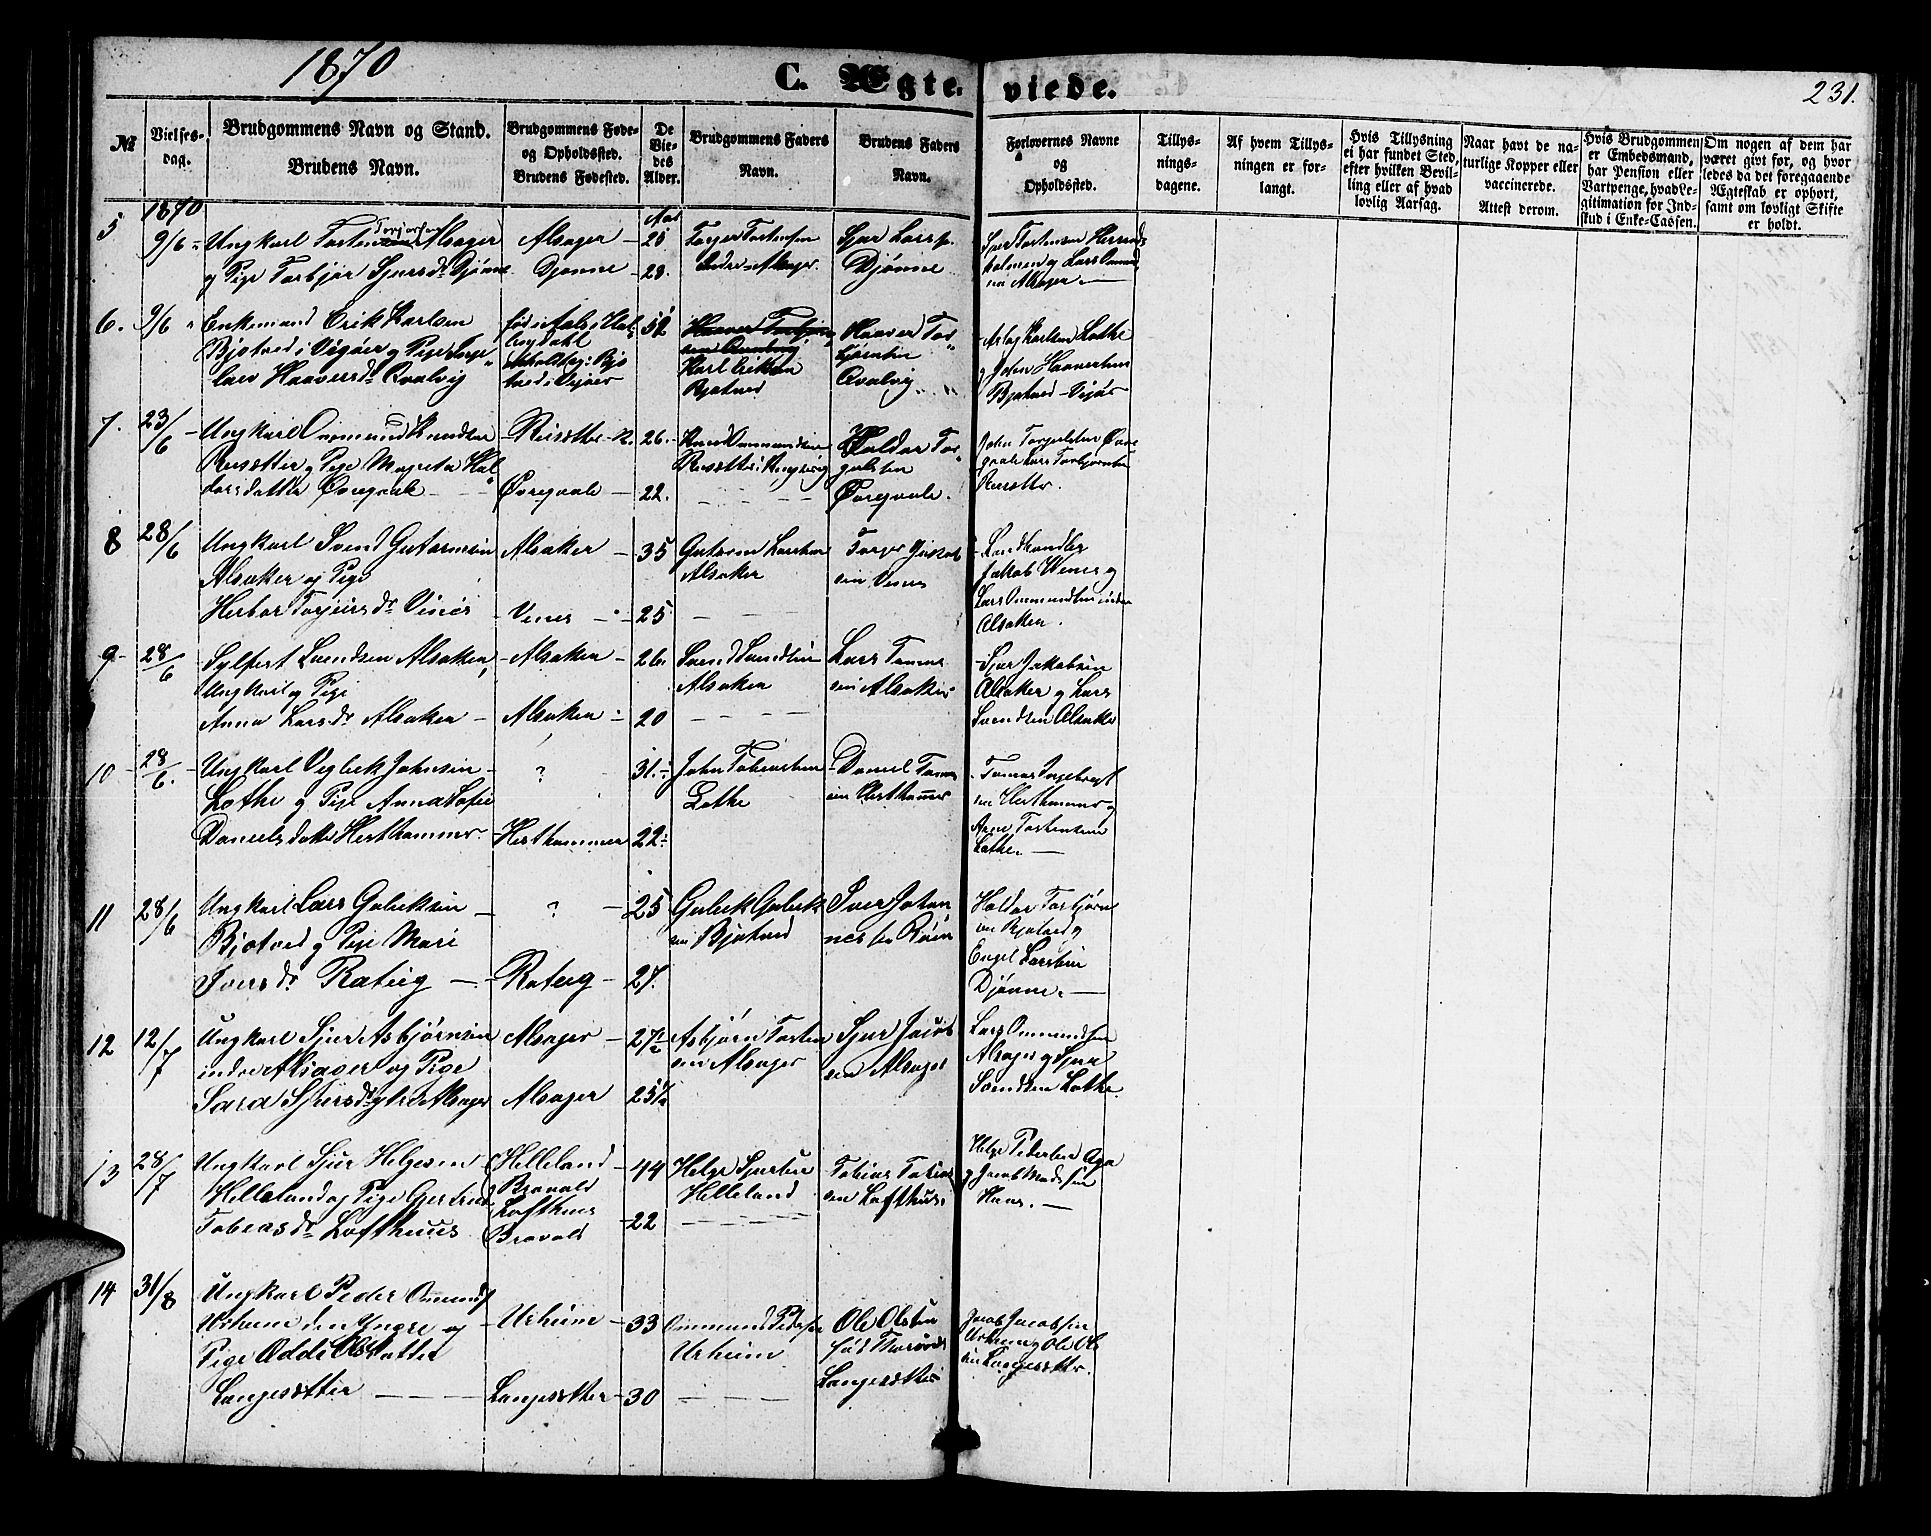 1870
C. Ægteviede.
231.
№
Vielses-
dag.
Brudgommens Navn og Stand.
Brudens Navn.
Brudgommens Føde-
og Opholdssted.
Brudens Fødested.
De
Vie-
des
Alder.
Brudgommens Faders
Navn.
Brudens Faders
Navn.
Forlovernes Navne
og
Opholdssted.
Tillys-
nings-
dagene.
Af hvem Tillys-
ningen er for-
langt.
Hvis Tillysning
ei har fundet Sted,
efter hvilken Bevil-
ling eller af hvad
lovlig Aarsag.
Naar havt de na-
turlige Kopper eller
vaccinerede.
Attest derom.
Hvis Brudgommen
er Embedsmand,
har Pension eller
Vartpenge, hvad Le-
gitimation for Ind-
skud i Enke-Cassen.
Om nogen af dem har
været givt før, og hvor
ledes da det foregaaende
Ægteskab er ophørt,
samt om lovligt Skifte
er holdt.
1870
5 9/6
Ungkarl Torsten Alsager
og Pige Torbjør Sjursdr Djønne
Alsager
Djønne
Aar
28
Torger Torstensen
Indre Alsager
Sjur Larss.
Djønne
Sjur Torstensen
holmen og Lars
Alsager
6. 9/6
Enkemand Erik Karlsen
Bjotved i Vigøer og Pige
Haaversdr Qvalvig
fød i Aals i Hal-
lingdahl
Bjo
tved i Vigøer
52
Karl Eriksen
Bjotved
Haaver Tor-
bjørnsen
Qvalvig
Aslag Karlsen Lothe
og John Haaversen
Bjotved Vigør
7. 23/6
Ungkarl Ommund Knudsen
Reisæter og Pige Magreta Hal-
dorsdatter Øvregaale
Reisæter
Øvregaale
26.
22.
Knud Ommundsen
Reisæter i
Haldor Tor-
galsen
Øvregaale.
John Torgelsen Øvre
gaale Lars Torbjørnsen
Reisæter.
8 28/6
Ungkarl Svend Guttormsen
Alsaker og Pige
Herbor Torjeirsdr Vines
Alsaker
Vines
35
25
Guttorm Larsen
Alsaker
Torger Jakob
sen Vines
Landhandler
Jakob Vines og
Lars Ommundsen indre
Alsaker.
9 28/6
Sylfest Svendsen Alsaker,
Ungkarl og Pige
Anna Larsdr Alsaker
Alsaker
Alsaker
26
20
Svend Svendsen
Alsaker
Lars Tomas
sen Alsaker
Sjur Jakobsen
Alsaker og Lars
Svendsen Alsaker
10 28/6.
Ungkarl Veglek Johnsen
Lothe og Pige Anna Sofie
Danielsdatter Hesthammer.
?
Hesthammer
31.
22
John Tobiassen
Lothe
Daniel Tomas
sen Hesthammer
Tomas Ingebregt
sen Hesthammer og
Arne Torstensen
Lothe.
11 28/6
Ungkarl Lars Gulleksen
Bjotved og Pige Mari
Iversdr Rateig
?
Rateig
25
27.
Gullek Gullek
sen Bjotved
Iver Johan
nessen
Haldor Torbjørn
sen Bjotved og
Engel Larsen
Djønne.
12 12/7
Ungkarl Sjur Asbjørnsen
indre Alsager og Pige
Sara Sjursdr ytre Alsager
Alsager
Alsager
27½
25½
Asbjørn Torsten
sen Alsager
Sjur Jacob
sen Alsager
Lars Ommundsen
Alsager og Sjur
Svendsen Lothe.
13 28/7
Ungkarl Sjur Helgesen
Helleland og Pige Gjertrud
Tobiasdr Lofthuus
Helleland
Bravold
Lofthus
Bravold
44
22
Helge Sjursen
Helleland
Tobias Tobias
sen Lofthuus
Helge Pedersen Aga
og Jacob Madssen
Huus.
14 31/8
Ungkarl Peder Ommunds
Urheim den Yngre og
Pige Odde Olsdatter
Langesætter
Urheim
Langesætter
33
30
Ommund Pedersen
Urheim
Ole Olsen
Langesætter
Jacob Jacobsen
Urheim og Ole Ol
sen Langesætter.